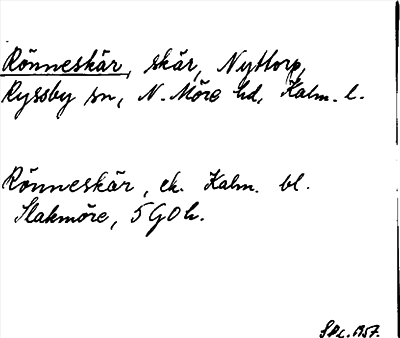 Rönneskär, skär, Nyttorp,
Ryssby sn, N. Möre hd, Kalm. l.
Rönneskär, ek. Kalm. bl.
Slakmöre, 5G0h.
1957.